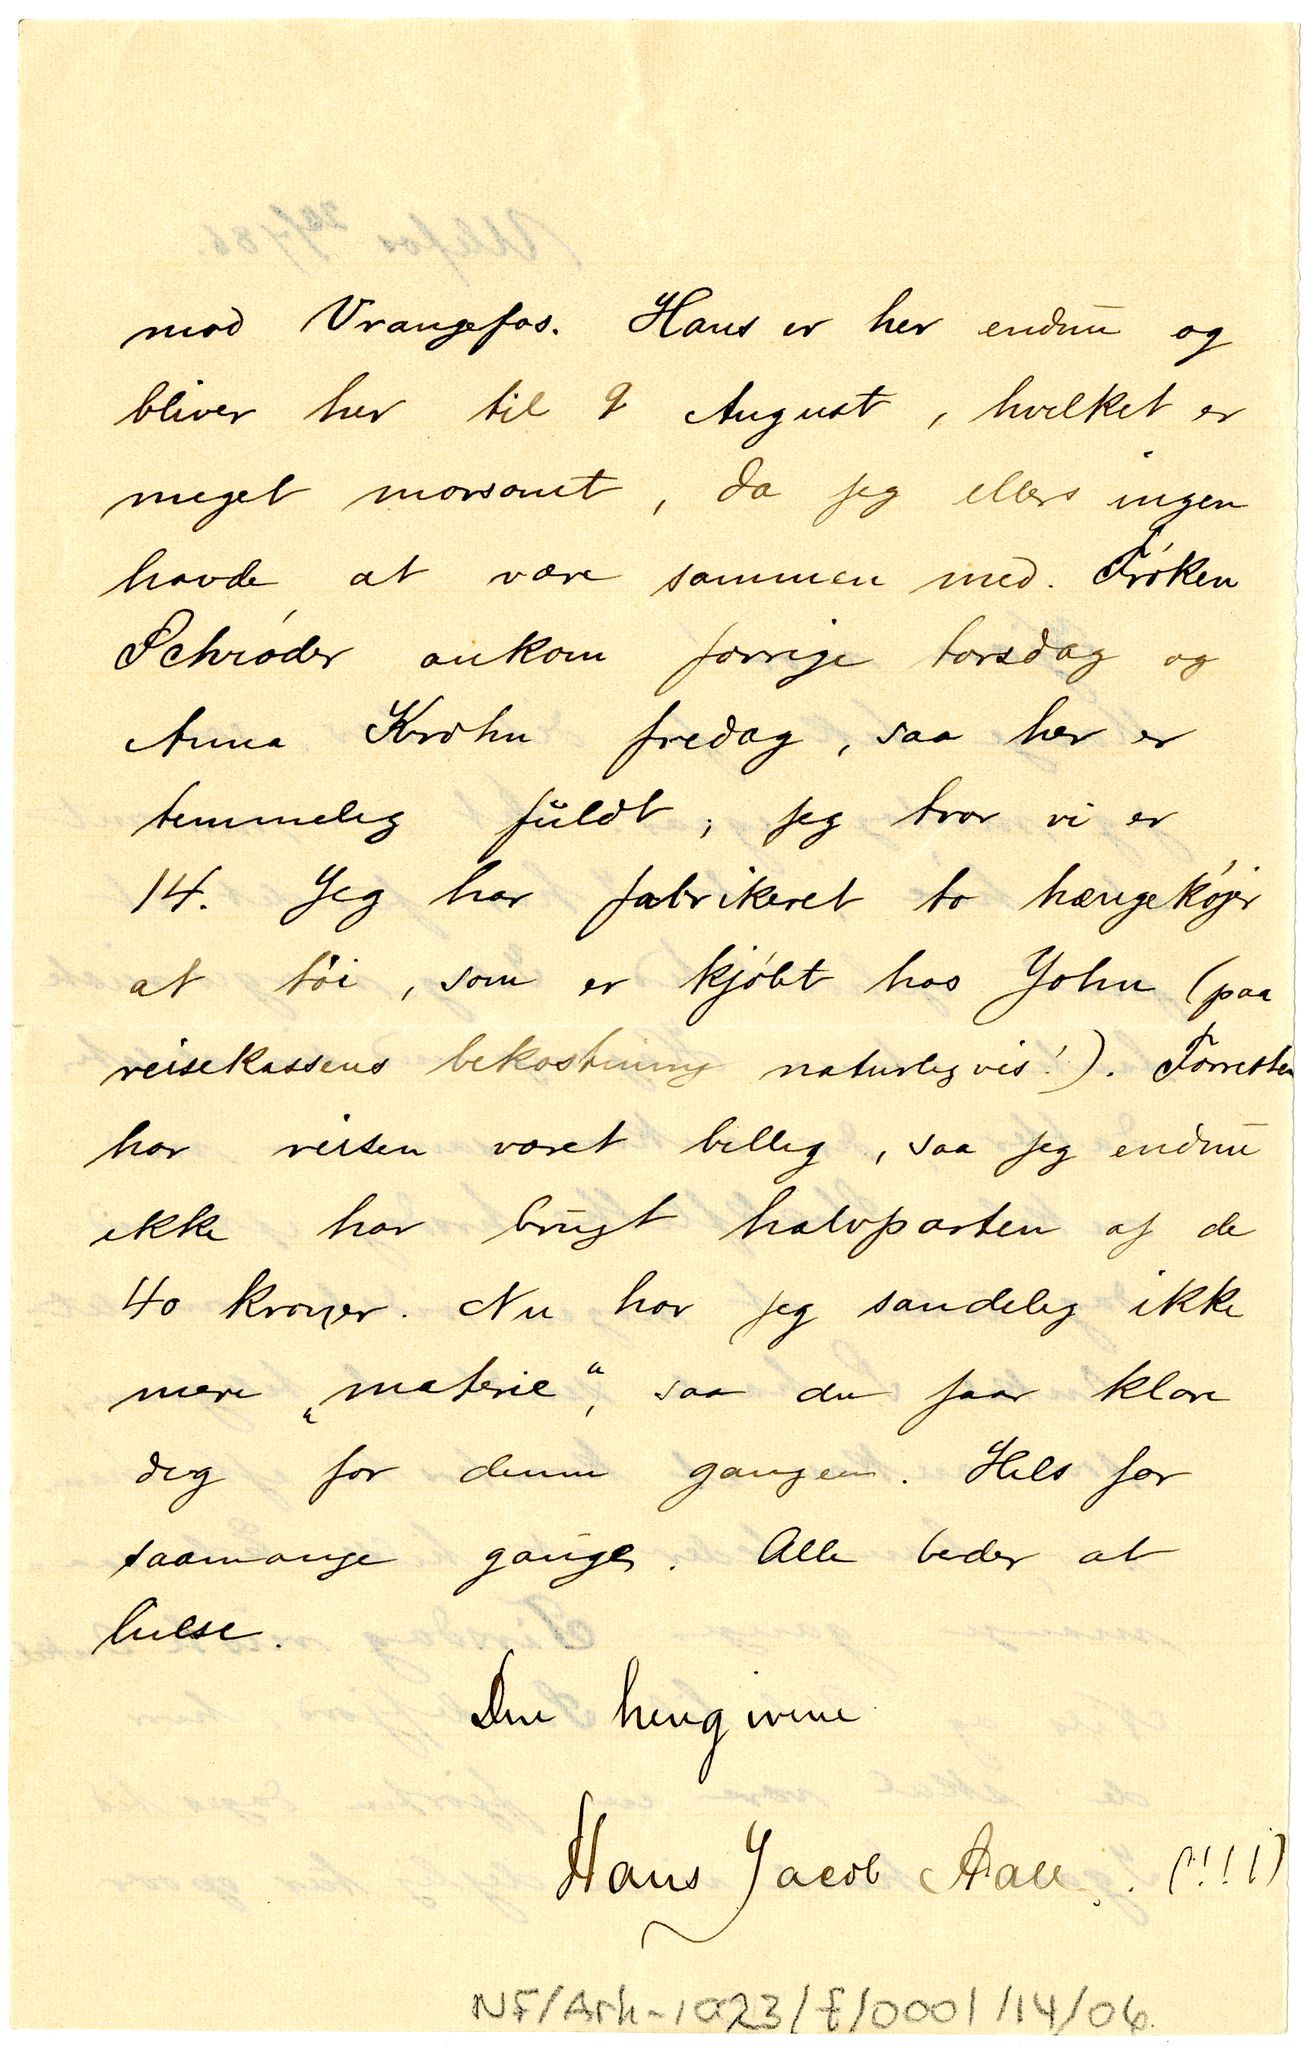 mod Vrangefos. Hans er her endnu og
bliver her til 9 August, hvilket er
meget morsomt, da jeg ellers ingen
havde at være sammen med. Frøken
Schrøder ankom forrige torsdag og
Anna Krohn fredag, saa her er
temmelig fuldt; jeg tror vi er
14. Jeg har fabrikeret to hængekøjer
af tøi, som er kjøbt hos John (paa
reisekassens bekostning naturligvis!). Forresten
har reisen været billig, saa jeg endnu
ikke har brugt halvparten af de
40 kroner. Nu har jeg sandelig ikke
mere „materie“, saa du faar klare
dig for denne gangen. Hils far
saamange ganger. Alle beder at
hilse.
Din hengivne
Hans Jacob Aall. (!!!!)
NF/Ark-1023/E/0001/14/06.